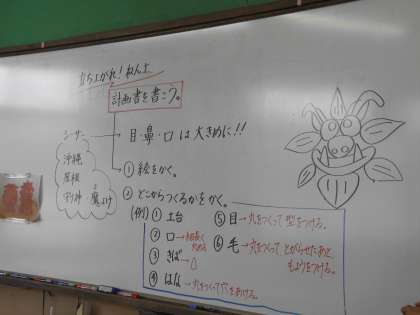 立ち上がれ!ねん土
計画書を書こう。
目・鼻・口は大きめに!!
シーサー
沖縄
屋根
守り神
魔よけ
①絵をかく。
②どこからつくるかをかく。
(例)①土台
②口→細長く丸める
③きば→
④はな→丸をつくって穴をあける。
⑤目→丸をつくって型をつける。
⑥毛→丸をつくってとがらせたあともようをつける。